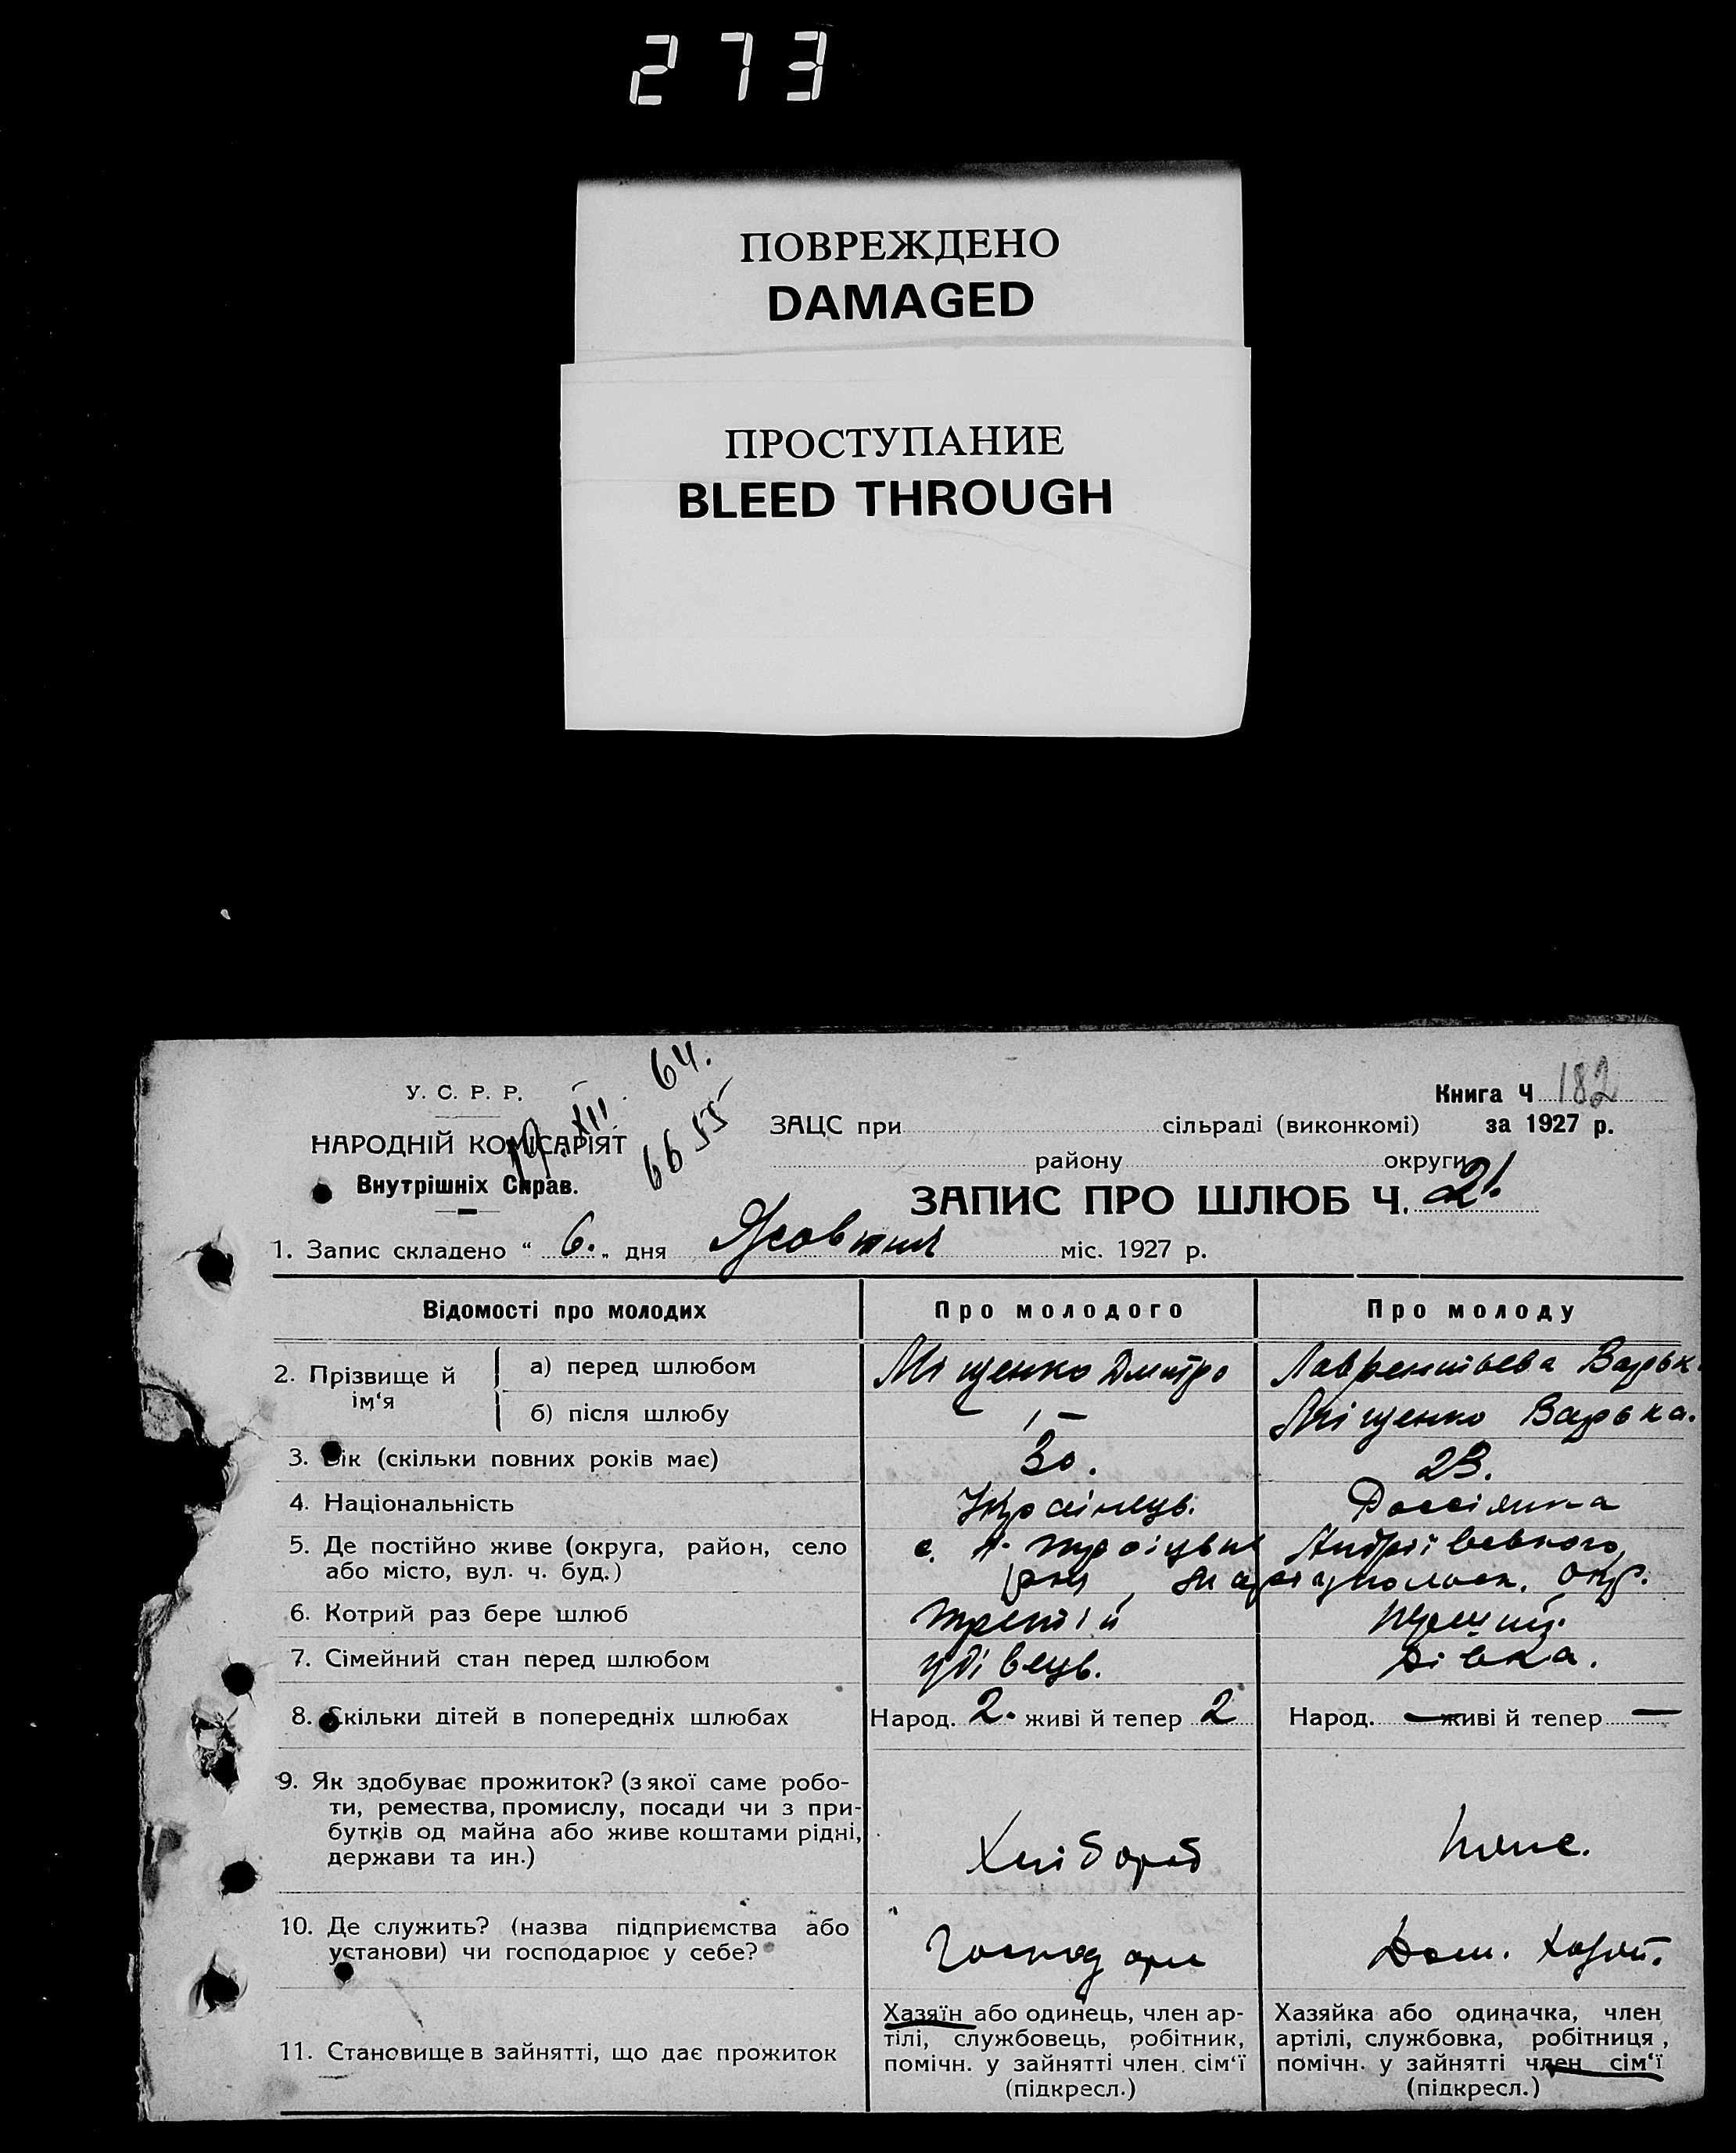 273
ПОВРЕЖДЕНО
DAMAGED
ПРОСТУПАНИЕ
BLEED THROUGH
У. С. Р. Р.
НАРОДНІЙ КОМІСАРІЯТ
Внутрішніх Справ.
XII 64.
6655
Книга Ч 182
ЗАЦС при сільраді (виконкомі) за 1927 р.
району округи
ЗАПИС ПРО ШЛЮБ Ч. 21.
1. Запис складено " 6. " дня Жовтня міс. 1927 р.
Відомості про молодих Про молодого Про молоду
2. Прізвище й ім'я
а) перед шлюбом Міщенко Дмитро Лаврентьева Варьк
б) після шлюбу — ı — Міщенко Варька.
3. Вік (скільки повних років має) 30. 23.
4. Національність Українець. Россіянка
5. Де постійно живе (округа, район, село
або місто, вул. ч. буд.)
с. Андріівського
Маріупольск. Окр.
6. Котрий раз бере шлюб третій перший.
7. Сімейний стан перед шлюбом удівець. дівка.
8. Скільки дітей в попередніх шлюбах Народ. 2. живі й тепер 2 Народ. — живі й тепер —
9. Як здобуває прожиток? (з якої саме робо-
ти, ремества, промислу, посади чи з при-
бутків од майна або живе коштами рідні,
держави та ин.)
Хлібороб
10. Де служить? (назва підприємства або
установи) чи господарює у себе?
Господарює Дом. хазяй.
11. Становище в зайнятті, що дає прожиток
Хазяїн або одинець, член ар-
тілі, службовець, робітник,
помічн. у зайнятті член сім'ї
(підкресл.)
Хазяйка або одиначка, член
артілі, службовка, робітниця,
помічн. у зайнятті член сім'ї
(підкресл.)